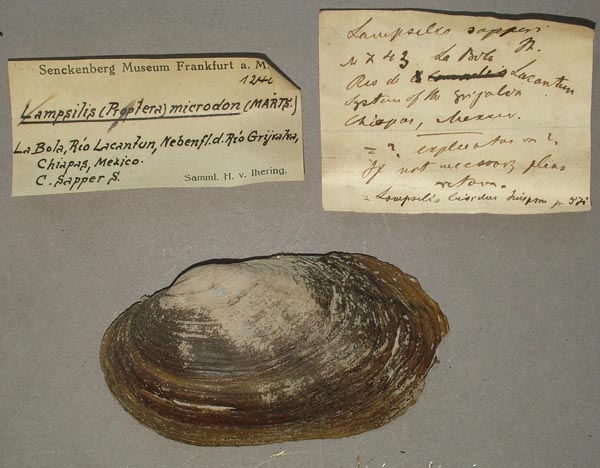 Senckenberg Museum Frankfurt a. M.
Lampsilis (Proptera) microdon (MARTS.)
La Bola, Río Lacantun, Nebenfl. d. Río Grijealva,
Chiapas, Mexico.
C. Sapper S.
Samml. H. v. Ihering.
Lampsilis sapperi
N 743 La Bola
Rio de Lacantun
System of the Grijalva
Chiapas, Mexico.
= ? explicatus or ?
If not necessary pleas
return.
= Lampsilis